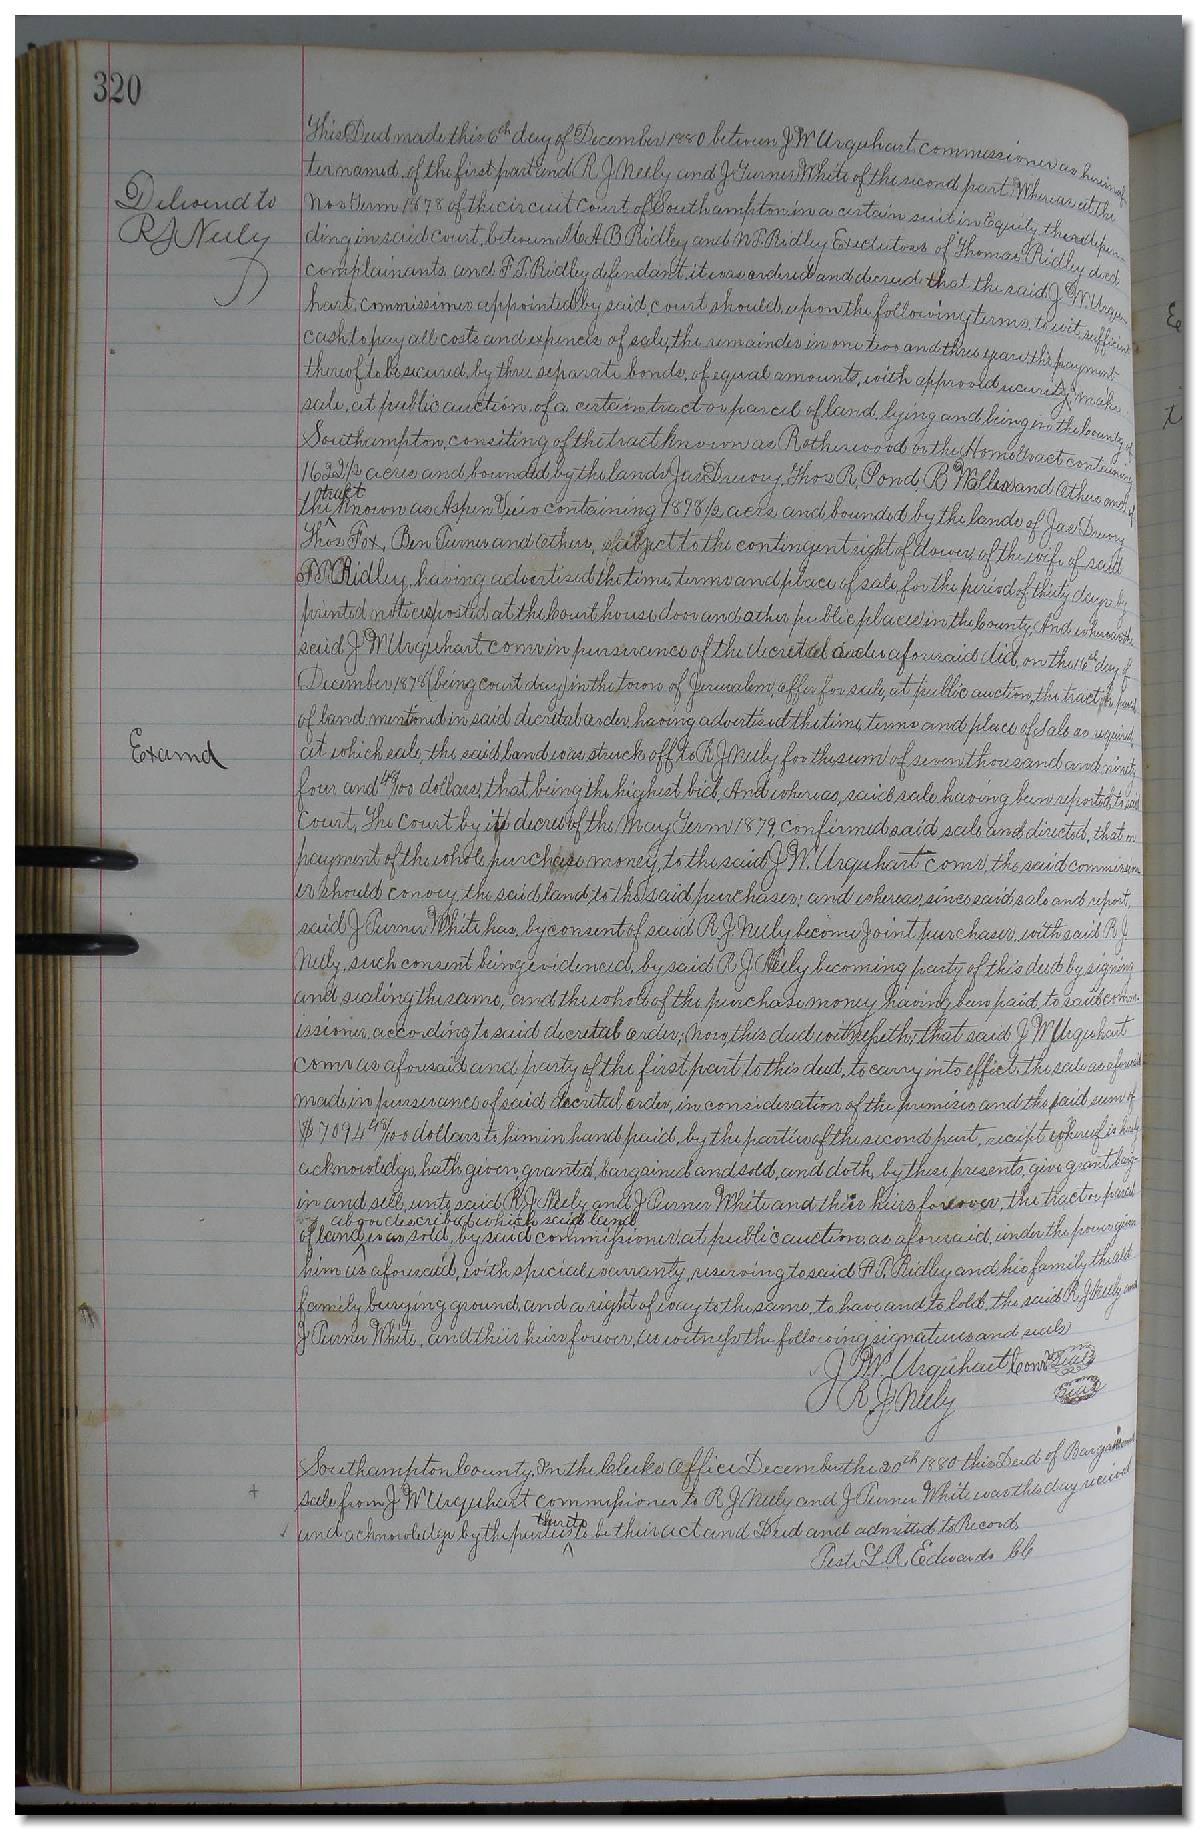 320
This Deed made this 6th day of December 1880 between J W Urquhart commissioner as hereinaf
ter named, of the first part and R J Neely and J Turner White of the second part. Whereas at the
Nov Term 1878 of the circuit court of Southampton in a certain suit in Equity then depen
Delivered to
R J Neely
ding in said court, between A B Ridley and Executors of Thomas Ridley decd
complainants and F T Ridley defendant, it was ordered and decreed that the said J W Urqu
hart, commissioner appointed by said court should, upon the following terms, to wit, sufficient
cash to pay all costs and expences of sale, the remainder in one two and three years the payment
thereof to be secured by three separate bonds, of equal amounts, with approved security make
sale, at public auction, of a certain tract or parcel of land, lying and being in the County of
Southampton, consiting of the tract known as Rotherwood or the Home tract containing
1622 1/2 acres and bounded by the lands Jas Drewry, Thos R. Pond, R and others and
tract
the known as Aspen View containing 1878 1/2 acrs and bounded by the lands of Jas Drewry
Thos Fox, Ben Turner and others, subject to the contingent right of dower of the wife of said
F T Ridley, having advertised the time, terms and place of sale for the period of thirty days by
printed notices posted at the Courthouse door and other public places in the County, And whereas the
said J W Urquhart comr in perservance of the decretal order aforesaid did, on the 16th day of
December 1878 (being court day) in the town of Jerusalem, offer for sale, at public auction, the tract or parcel
of land mentoned in said decretal order, having advertised the time, terms and place of Sale as required,
Examd
at which sale, the said land was struck off to R J Neely for the sum of seven thousand and ninety
four and 48/100 dollars, that being the highest bid, And whereas, said sale having been reported, to said
Court, The Court by its decree of the May Term 1879, confirmed said sale and directed, that on
payment of the whole purchase money, to the said J W. Urquhart comr, the said commission
er should convey the said land, to the said purchaser, and whereas, since said sale and report,
said J Turner White has, by consent of said R J Neely become Joint purchaser, with said R J
Neely, such consent being evidenced, by said R J Neely becoming party of this deed by signing
and sealing the same, and the whole of the purchase money having been paid, to said comm
issioner, according to said decretal order, Now, this deed witnesseth, that said J W Urquhart
comr as aforesaid and party of the first part to this deed, to carry into effect, the sale as aforesaid
made in perserance of said decretal order, in consideration of the premises and the paid sum of
$7094 48/100 dollars to him in hand paid, by the parties of the second part, receipt whereof is hereby
acknowledge, hath given, granted, bargained and sold, and doth, by these presents, give grant barg-
in and sell, unto said R J Neely and J Turner White and their heirs forever, the tract or parcel
above described which said land
of land was sold, by said commissioner at public auction, as aforesaid, under the power given
him as aforesaid, with special warranty, reserving to said F T Ridley and his family the old
family burying ground, and a right of way to the same, to have and to hold, the said R J Neely and
J Turner White, and their heirs forever, as witness the following signatures and seals
J W Urquhart Comr Seal
R J Neely Seal
Southampton County, In the Clerks Office December the 20th 1880 this Deed of Bargain and
sale from J W Urquhart commissioner to R J Neely and J Turner White was this day received
thereto
and acknowledge by the parties to be their act and Deed and admitted to Record.
Test L R Edwards CC